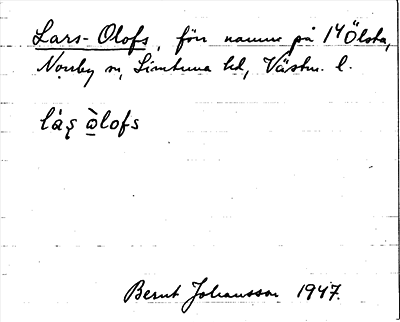 Lars-Olofs, förr namn på 1/4 Ölsta,
Norrby sn, Simtuna hd, Västm. l.
láş ὼlofs
Bernt Johansson 1947.